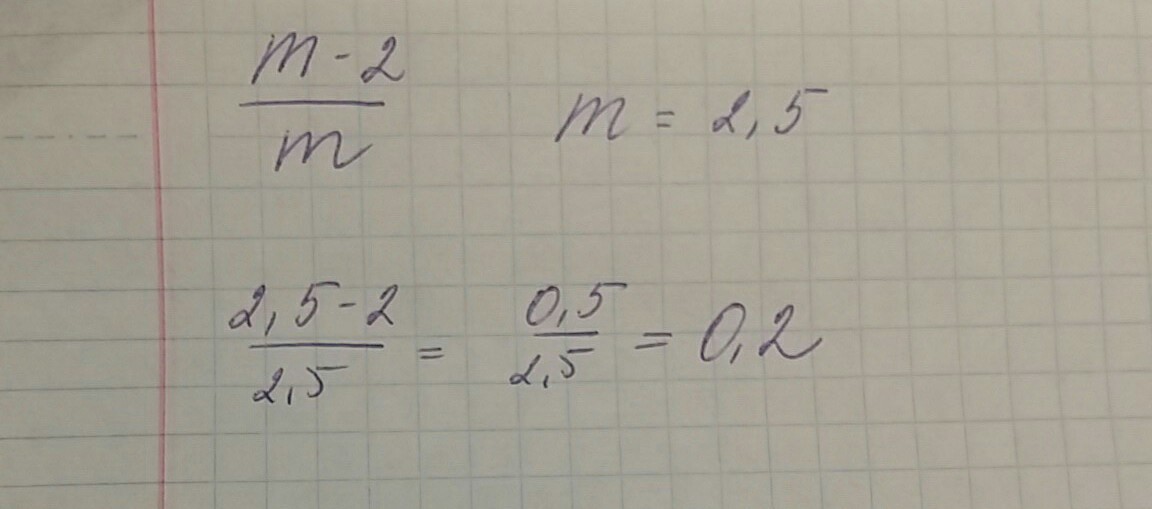 (m - 2) / m    m = 2,5
(2,5 - 2) / 2,5 = 0,5 / 2,5 = 0,2